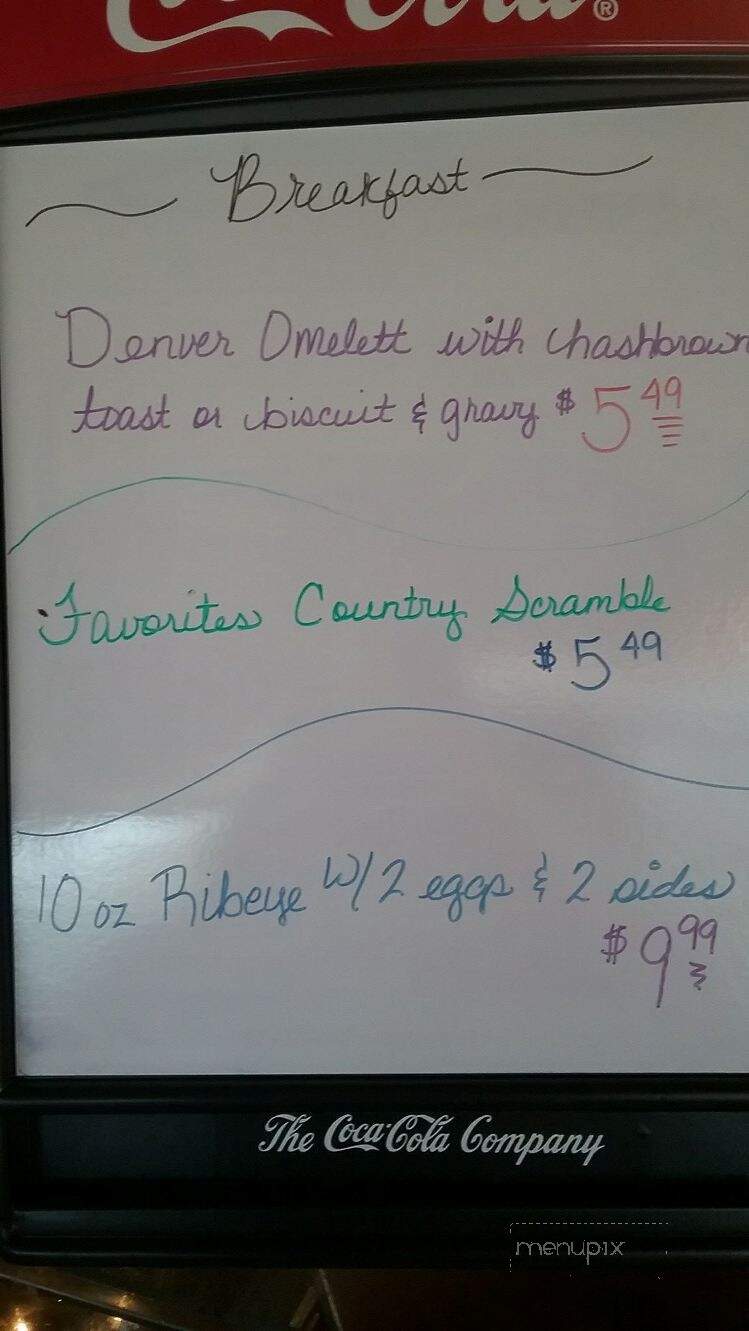 Coca-Cola®
Breakfast
Denver Omelett with hashbrown
toast or biscuit & gravy $5 49
Favorites Country Scramble
$5 49
10 oz Ribeye W/2 eggs & 2 sides
$9 99
The Coca-Cola Company
menupix